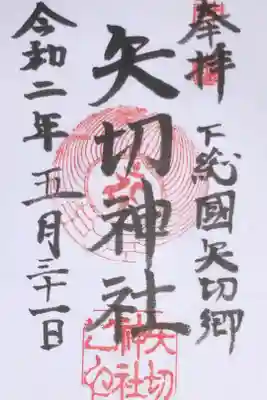 奉拝
下総國矢切郷
矢切神社
令和二年五月三十一日
矢切
神社